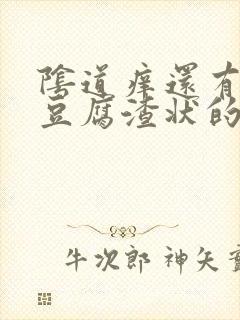 陰道痒還有
豆腐渣狀的
牛次郎 神矢